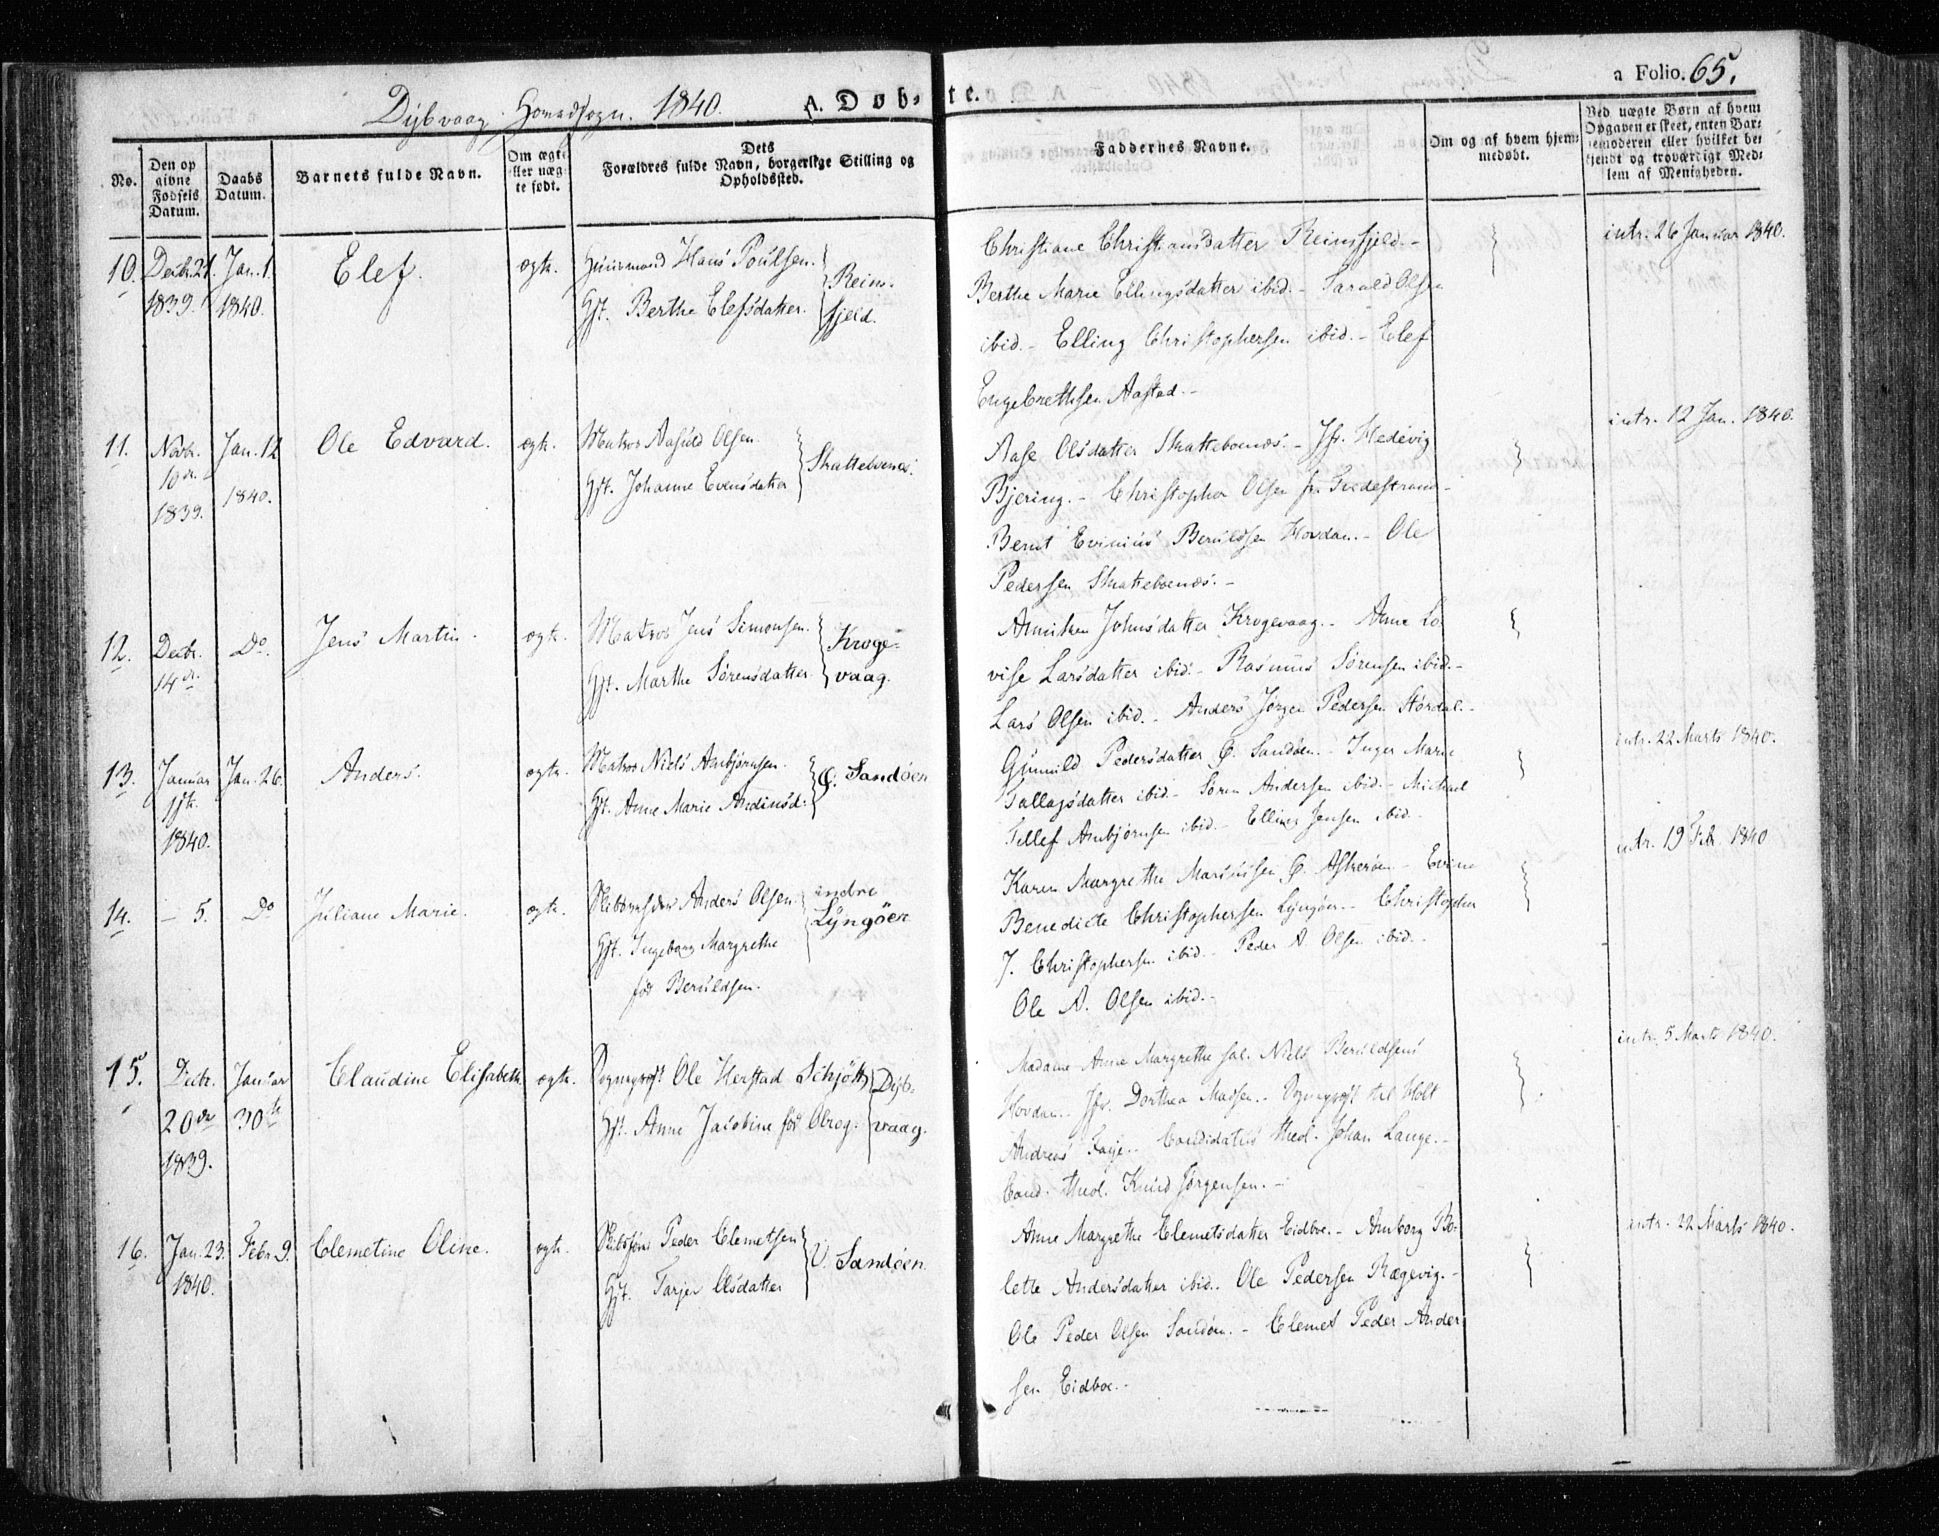 Dybvaag Hovedsogn. 1840. A. Døbte. a Folio. 65.
No. Den opgivne Fødsels Datum. Daabs Datum. Barnets fulde Navn. Om ægte eller uægte født. Dets Forældres fulde Navn, borgerlige Stilling og Opholdssted. Faddernes Navne. Om og af hvem hjemmedøbt. Ved uægte Børn af hvem Opgaven er skeet, enten Barnemoderen eller hvilket bekjendt og troværdigt Medlem af Menigheden.
10. Decbr. 21. 1839. Jan. 1. 1840. Elef. ægte.
Huusmand Hans Poulsen.
Hst. Berthe Elefsdatter.
Reinsfjeld.
Christiane Christiansdatter Reinsfjeld. –
Berthe Marie Ellingsdatter ibid. – Olsen
ibid. – Elling Christophersen ibid. – Elef
Engebrethsen Aastad. –
intr. 26 Januar 1840.
11. Novbr. 10de 1839. Jan. 12 1840. Ole Edvard. ægte.
Matros Aasuld Olsen.
Hst. Johanne Evensdatter
Skatteboenæs.
Aase Olsdatter Skatteboenæs. – Jfr. Hedevig
Bjering. – Christopher Olsen fr.
Bernt Evinius Beruldsen Hovdan. – Ole
Pedersen Skatteboenæs. –
intr. 12 Jan. 1840.
12. Decbr. 14de Do. Jens Martin. ægte.
Matros Jens Simonsen.
Hst. Marthe Sørensdatter
Krogevaag.
Johnsdatter Krogevaag. – Anne Lo
vise Larsdatter ibid. – Rasmus Sørensen ibid. –
Lars Olsen ibid. – Anders Jørgen Pedersen Stordal. –
13. Januar 1840. Jan. 26. Anders. ægte.
Matros Niels Ambjørnsen.
Hst. Anne Marie
Ø. Sandøen
Gunnild Pedersdatter Ø. Sandøen. – Inger Marie
Tallagsdatter ibid. – Søren Andersen ibid. – Michael
Tellef Ambjørnsen ibid. – Elling Jensen ibid. –
intr. 22 Marts 1840.
14. – 5. Do Juliane Marie. ægte.
Anders Olsen.
Hst. Ingeborg Margrethe
fød Beruldsen.
indre Lyngøen
Karen Margrethe Ø. Askerøen – Evine
Benedicte Christophersen Lyngøen. – Christopher
J. Christophersen ibid. – Peder A. Olsen ibid. –
Ole A. Olsen ibid. –
intr. 19 Feb. 1840
15. Decbr. 20de 1839. Januar 30te Claudine Elisabeth. ægte.
Sognepræst Ole Herstad Schjøtt
Hst. Anne Jacobine fød Obrog.
Dybvaag.
Madame Anne Margrethe sal. Niels Beruldsens
Hovdan. Jfr. Dorthea Madsen. – Sognepræst til Holt
Andreas Faye. – Candidatus theol. Johan Lange. –
Cand. theol. Knud Jørgensen. –
intr. 5 Marts 1840.
16. Jan. 23. 1840. Febr. 9. Clemetine Oline. ægte.
Peder Clemetsen
Hst. Tarjer Olsdatter
V. Sandøen.
Anne Margrethe Clemetsdatter Eidboe. – Amborg Bo-
lette Andersdatter ibid. Ole Pedersen Rægevig. –
Ole Peder Olsen Sandøen. – Clemet Peder Ander
sen Eidboe. –
intr. 22 Marts 1840.